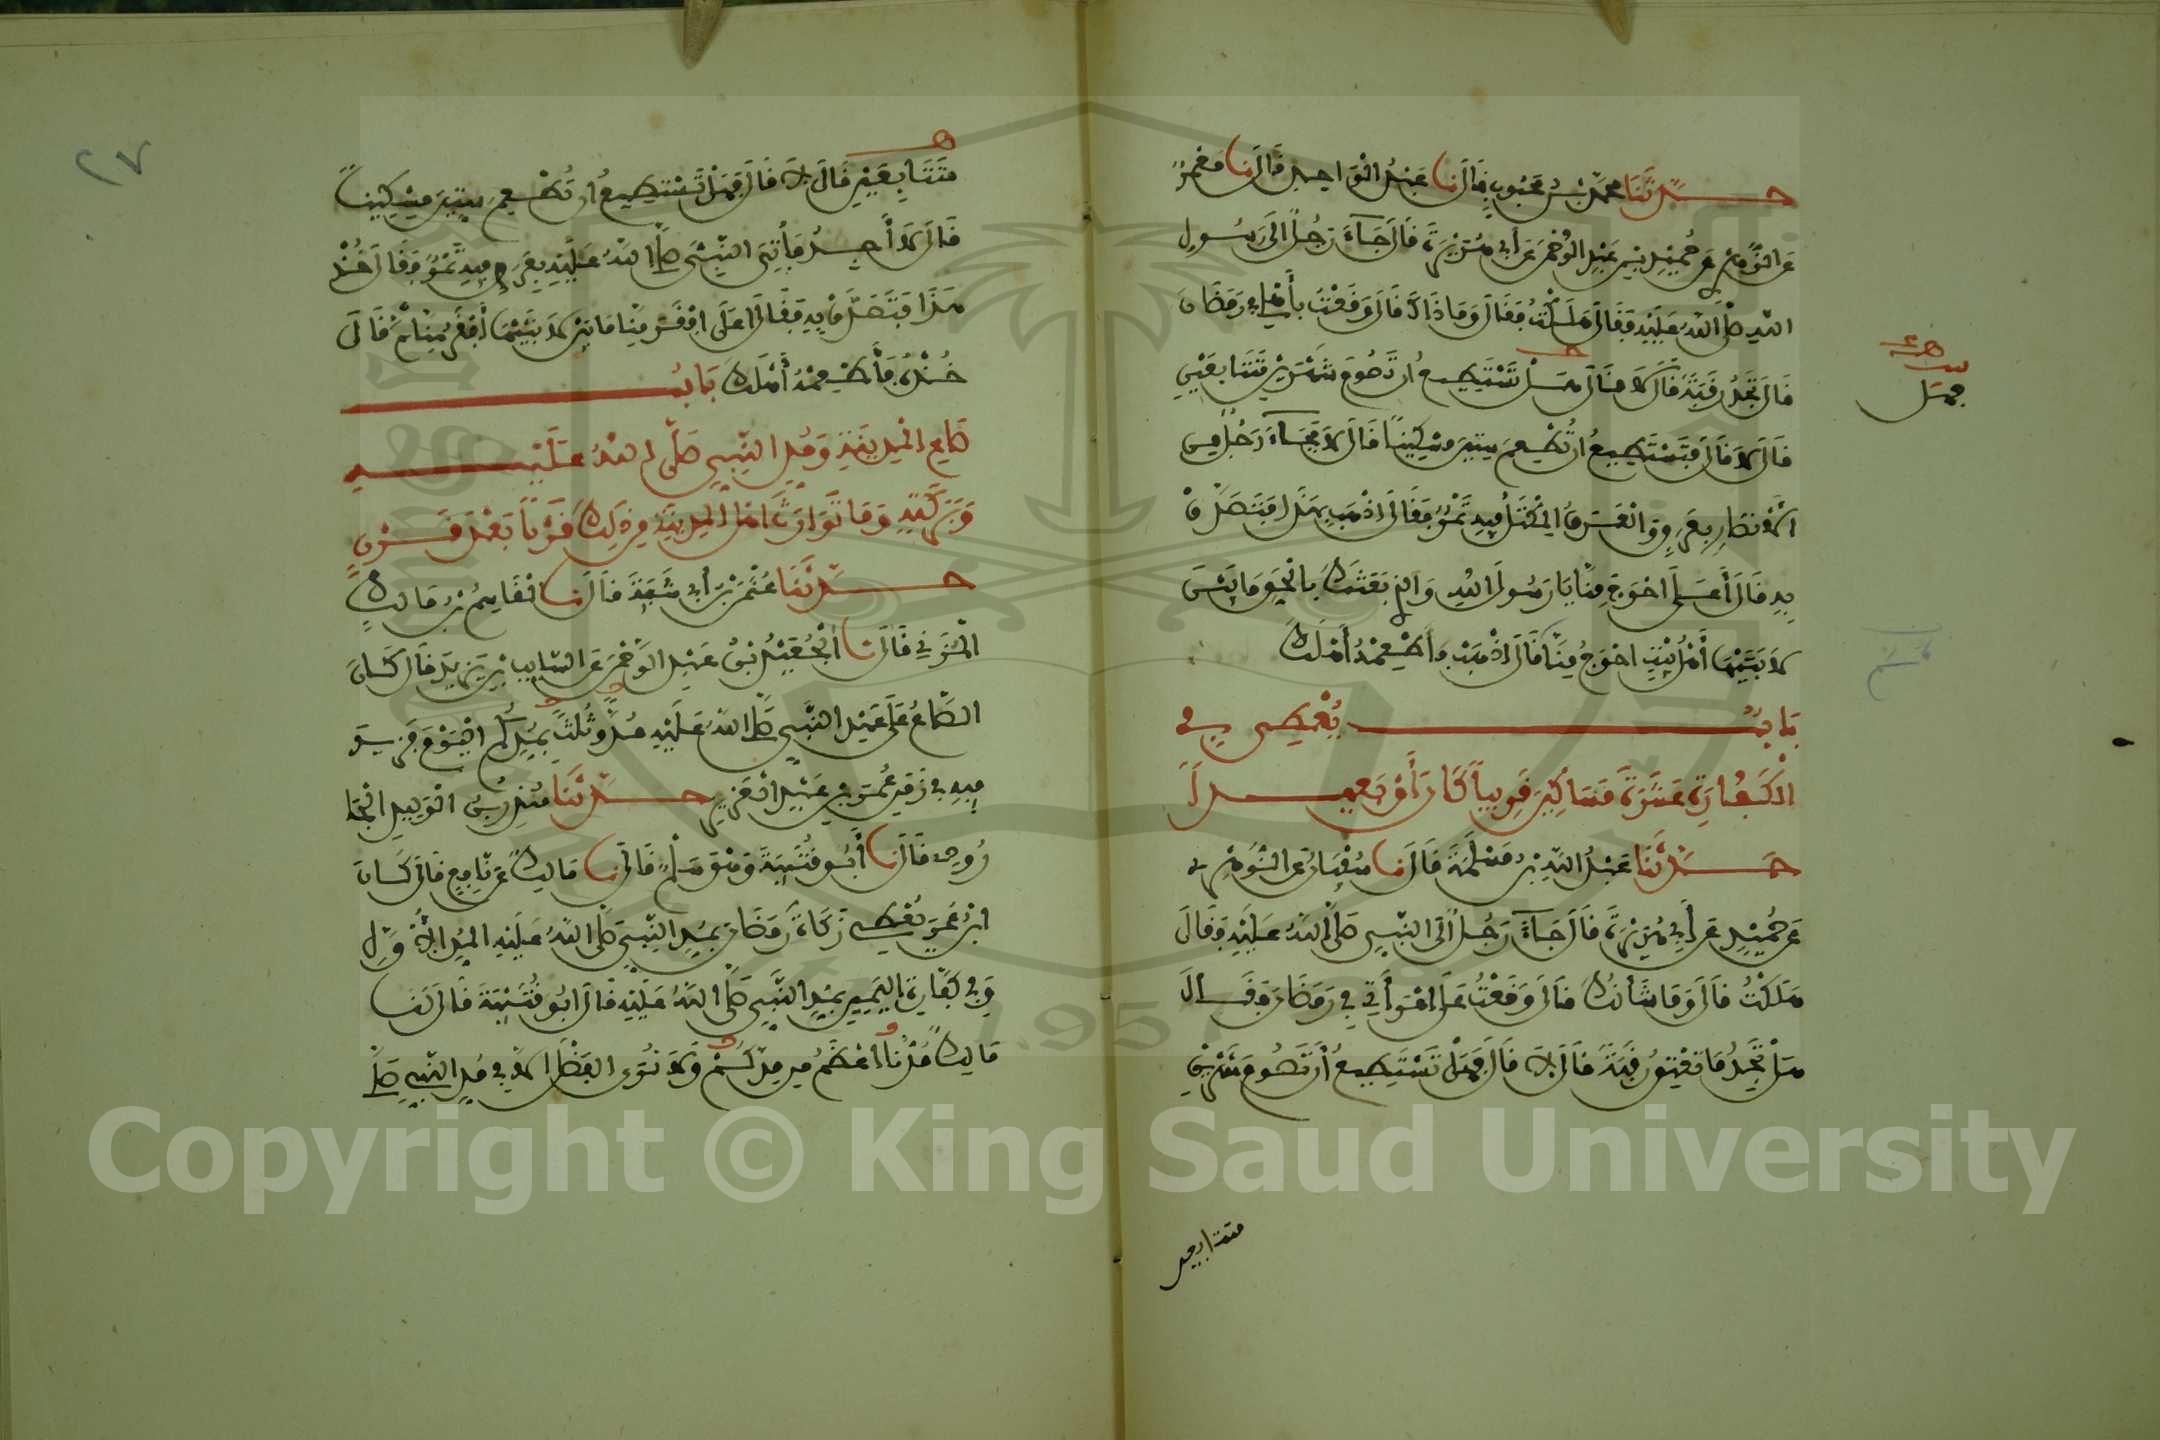 حدثنا محمد بن محبوب قال نا عبد الواحد قال نا معمر
عن الزهري عن حميد بن عبد الرحمن عن أبي هريرة قال جاء رجل الى رسول
الله صلى الله عليه فقال هلكت فقال وما ذاك قال وقعت بأهلي في رمضان
قال تجد رقبة قال لا قال هل تستطيع ان تصوم شهرين متتابعين
فهل
قال لا قال فتستطيع ان تطعم ستين مسكينا قال لا فجاء رجل من
الانصار بعرق والعرق المكتل فيه تمر فقال اذهب بهذا فتصدق
به قال أعلى احوج منا يا رسول الله والذي بعثك بالحق ما بين
لابتيها أهل بيت احوج منا قال اذهب فأطعمه أهلك
باب يعطي في
الكفارة عشرة مساكين قريبا كان أو بعيدا
حدثنا عبد الله بن مسلمة قال نا سفيان عن الزهري
عن حميد عن أبي هريرة قال جاء رجل الى النبي صلى الله عليه فقال
هلكت قال وما شأنك قال وقعت على امرأتي في رمضان فقال
هل تجد ما تعتق رقبة قال لا قال فهل تستطيع أن تصوم شهرين
٢٧
متتابعين قال لا قال فهل تستطيع ان تطعم ستين مسكينا
قال لا أجد فأتي النبي صلى الله عليه بعرق فيه تمر فقال خذ
هذا فتصدق به فقال اعلى افقر منا ما بين لابتيها أفقر منا ثم قال
خذه فأطعمه أهلك باب
صاع المدينة ومد النبي صلى الله عليه
وبركته وما توارث اهل المدينة من ذلك قرنا بعد قرن
حدثنا عثمن بن أبي شيبة قال نا القاسم بن مالك
المزني قال نا الجعيد بن عبد الرحمن عن السايب بن يزيد قال كان
الصاع على عهد النبي صلى الله عليه مد وثلث بمدكم اليوم فزيد
فيه في زمن عمر بن عبد العزيز حدثنا منذر بن الوليد الجا
رودي قال نا أبو قتيبة وهو سلم قال نا مالك عن نافع قال كان
ابن عمر يعطي زكاة رمضان بمد النبي صلى الله عليه المد الأول
وفي كفارة اليمين بمد النبي صلى الله عليه قال ابو قتيبة قال لنا
مالك مدنا اعظم من مدكم ولا نرى الفضل الا في مد النبي صلى
Copyright © King Saud University